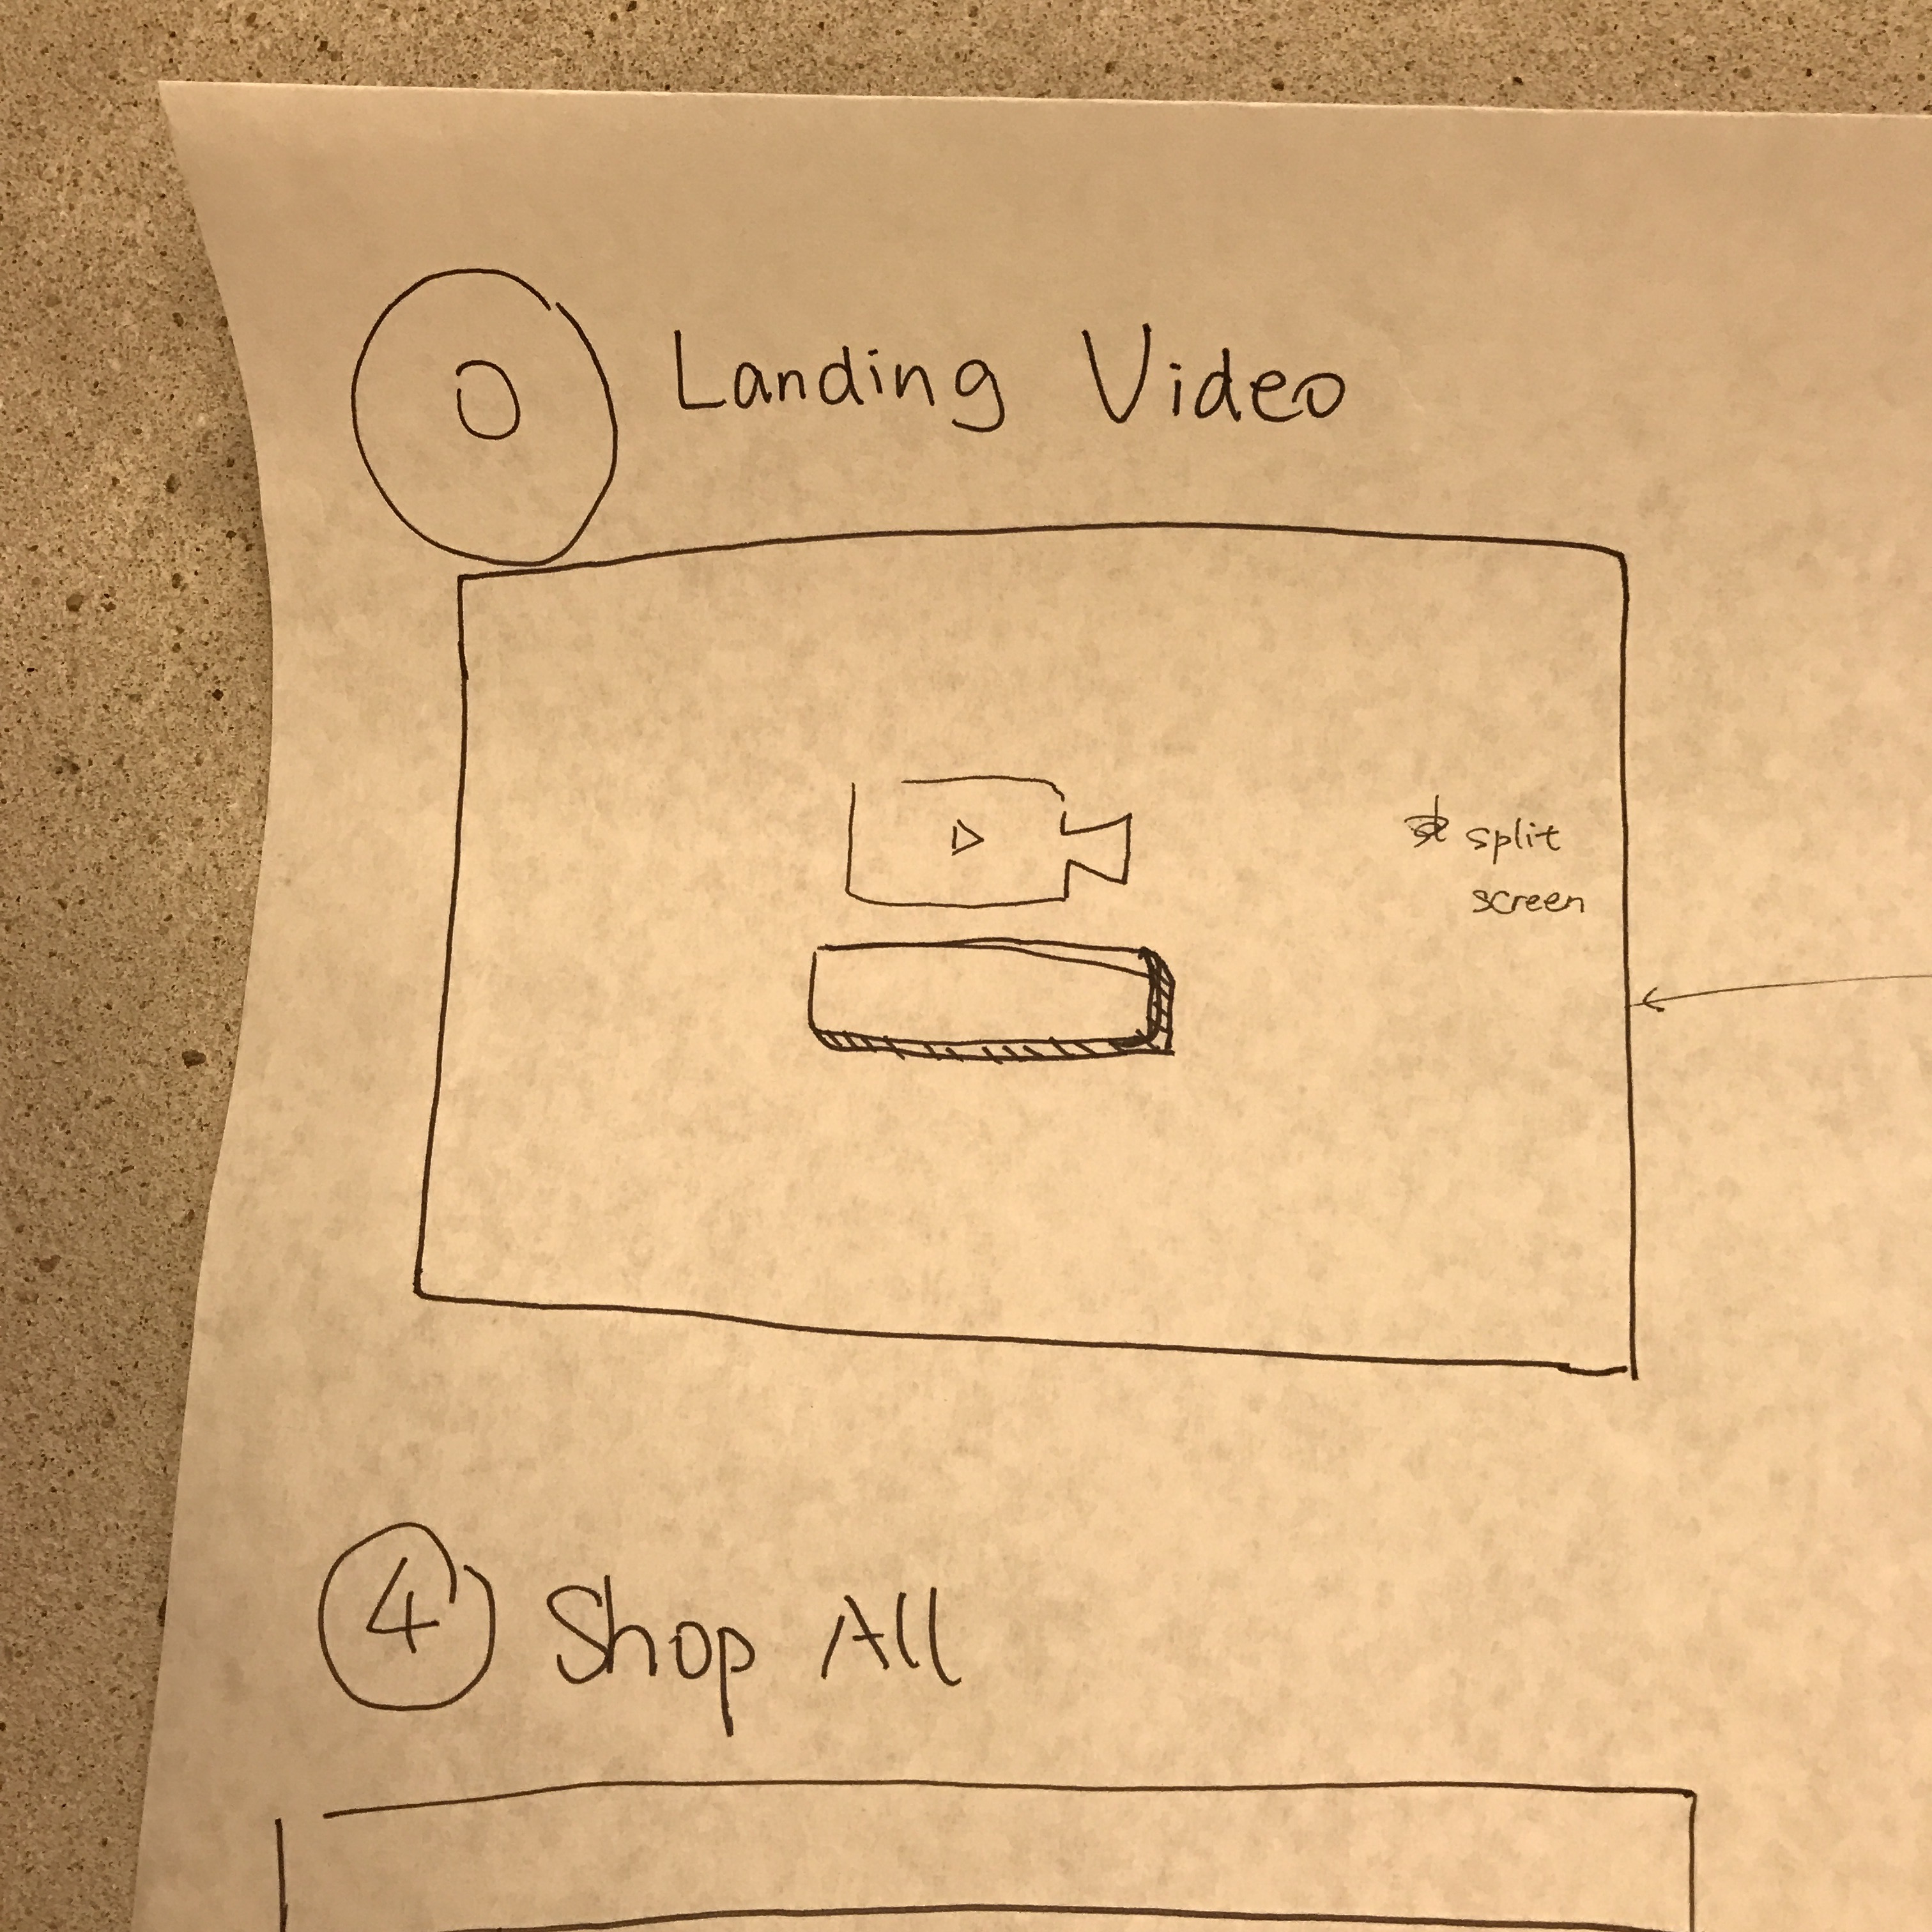 0 Landing Video
split
screen
4 Shop All